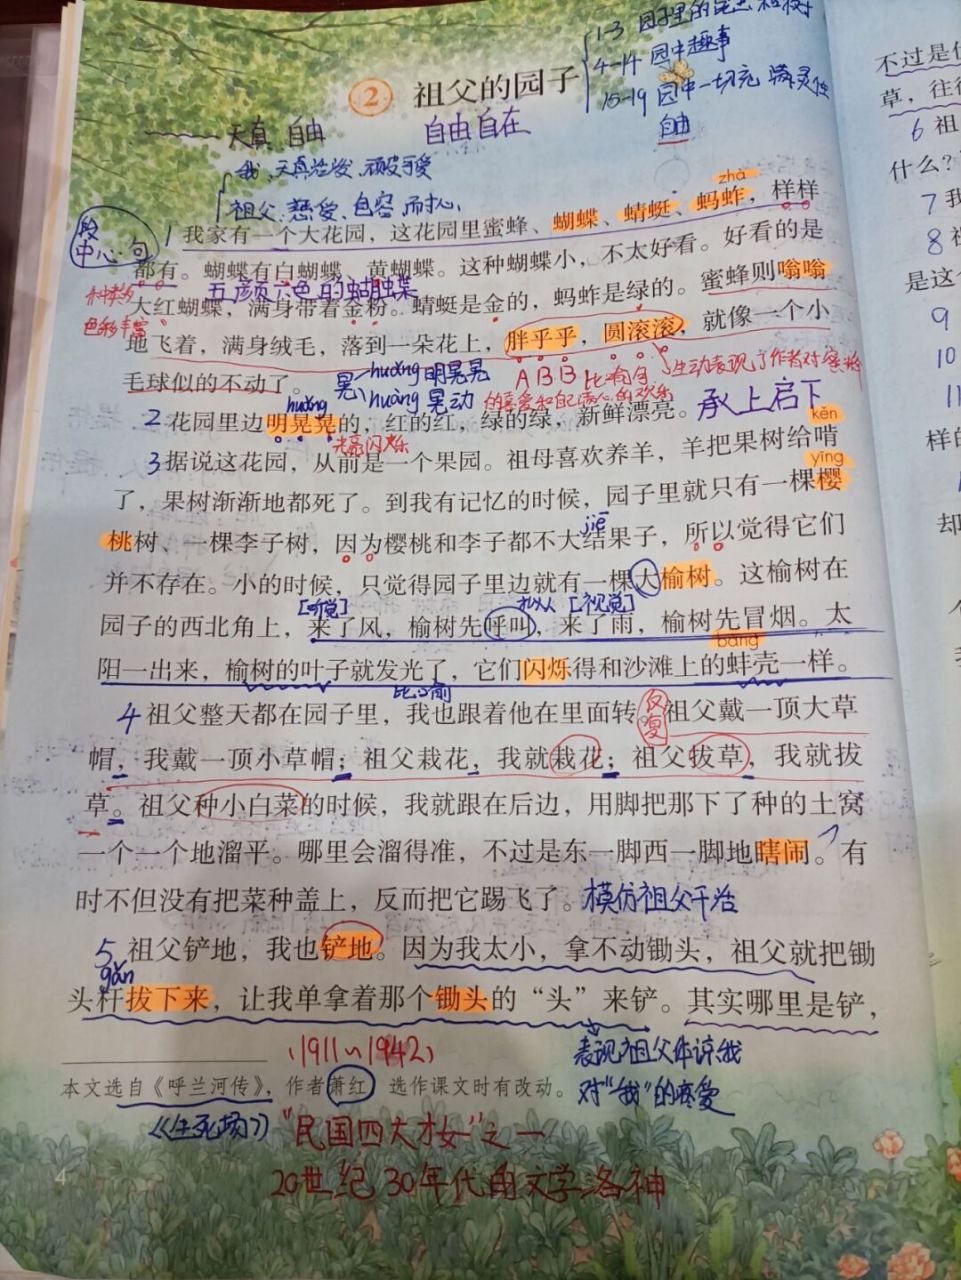 1-3 园子里的昆虫和树
4-14 园中趣事
15-19 园中一切充满灵性
自由
② 祖父的园子
天真 自由 自由自在
我:天真活泼、顽皮可爱
祖父:慈爱、包容、耐心
段
中心句
zhà
1 我家有一个大花园，这花园里蜜蜂、蝴蝶、蜻蜓、蚂蚱，样样
都有。蝴蝶有白蝴蝶、黄蝴蝶。这种蝴蝶小，不太好看。好看的是
种类多
五颜六色的蝴蝶
大红蝴蝶，满身带着金粉。蜻蜓是金的，蚂蚱是绿的。蜜蜂则嗡嗡
色彩丰富
地飞着，满身绒毛，落到一朵花上，胖乎乎，圆滚滚，就像一个小
ABB 比喻句 生动表现了作者对蜜蜂
的喜爱和自己满心的欢乐
毛球似的不动了。
晃 huǎng 明晃晃
huàng 晃动
承上启下
huǎng
2 花园里边明晃晃的，红的红，绿的绿，新鲜漂亮。
光亮闪烁
kěn
3 据说这花园，从前是一个果园。祖母喜欢养羊，羊把果树给啃
yīng
了，果树渐渐地都死了。到我有记忆的时候，园子里就只有一棵樱
jiē
桃树、一棵李子树，因为樱桃和李子都不大结果子，所以觉得它们
并不存在。小的时候，只觉得园子里边就有一棵大榆树。这榆树在
[听觉] 拟人 [视觉]
园子的西北角上，来了风，榆树先呼叫，来了雨，榆树先冒烟。太
bàng
阳一出来，榆树的叶子就发光了，它们闪烁得和沙滩上的蚌壳一样。
比喻
4 祖父整天都在园子里，我也跟着他在里面转。祖父戴一顶大草
反复
帽，我戴一顶小草帽；祖父栽花，我就栽花；祖父拔草，我就拔
草。祖父种小白菜的时候，我就跟在后边，用脚把那下了种的土窝
一个一个地溜平。哪里会溜得准，不过是东一脚西一脚地瞎闹。有
时不但没有把菜种盖上，反而把它踢飞了。
模仿祖父干活
5 祖父铲地，我也铲地。因为我太小，拿不动锄头，祖父就把锄
gǎn
头杆拔下来，让我单拿着那个锄头的“头”来铲。其实哪里是铲，
(1911~1942)
表现祖父体谅我
对“我”的疼爱
本文选自《呼兰河传》，作者萧红，选作课文时有改动。
《生死场》
“民国四大才女”之一
20世纪30年代的文学洛神
4
草，往往
6 祖
什么？
7 我
8 祖
是这个
9
10
11
样的
却